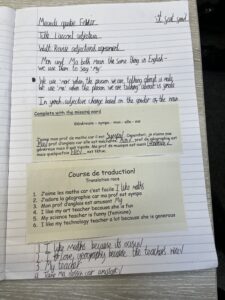 Mercredi quatre Février
Title: I accord adjectives
Walt: Revise adjectival agreement
Mon and Ma both mean the same thing in English -
we use them to say "my"
We use 'mon' when the person we are talking about is male
We use 'ma' when the person we are talking about is female
In french adjectives change based on the gender of the noun
Complete with the missing word
Généreuse – sympa – mon – elle – ma
J'aime mon prof de maths car il est Sympa! Cependant, je n'aime pas
prof d'anglais car elle est méchante. prof de géographie est
généreux mais il est rapide. Ma prof de musique est super
mais quelquefois est têtue.
Course de traduction!
Translation race
1. J'aime les maths car c'est facile I like maths
2. J'adore la géographie car ma prof est sympa.
3. Mon prof d'anglais est amusant My
4. I like my art teacher because she is fun
5. My science teacher is funny (feminine)
6. I like my technology teacher a lot because she is generous
1 I like maths because its easy!
2 I love geography because the teachers nice!
3 My teacher